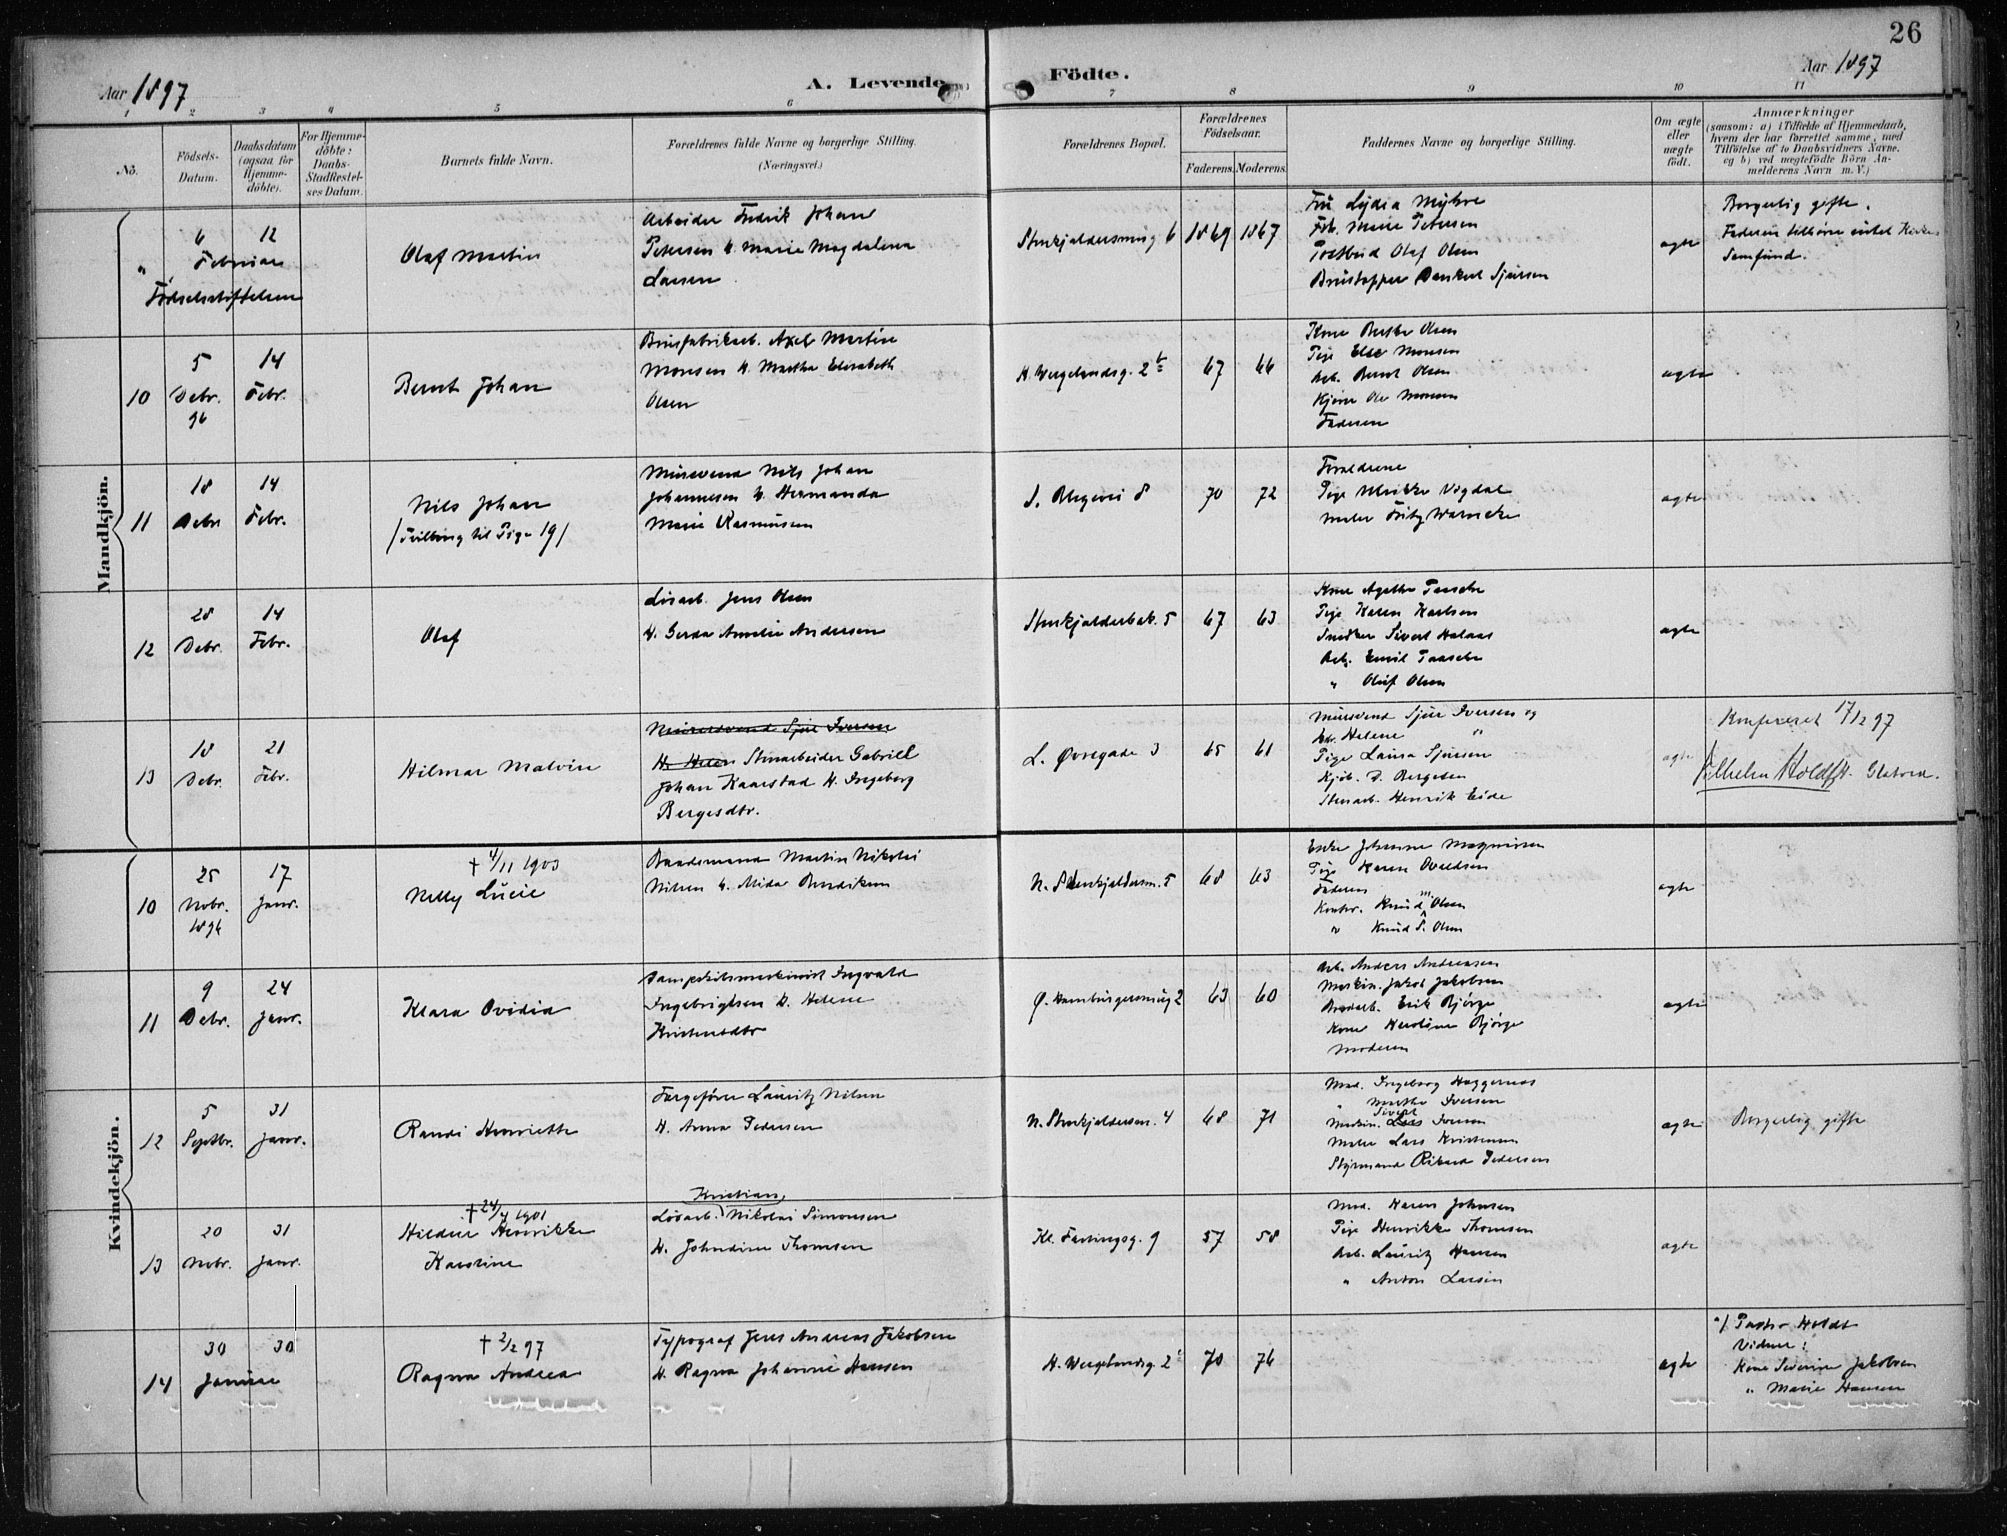 26
Aar 1897
A. Levende
Födte.
Aar 1897
1 2 3 4 5 6 7 8 9 10 11
No.
Födsels-
Datum.
Daabsdatum
(ogsaa for
Hjemme-
döbte).
For Hjemme-
döbte:
Daabs-
Stadfæstel-
ses Datum.
Barnets fulde Navn.
Forældrenes fulde Navne og borgerlige Stilling.
(Næringsvei.)
Forældrenes Bopæl.
Forældrenes
Födselsaar.
Faderens.
Moderens.
Faddernes Navne og borgerlige Stilling.
Om ægte
eller
uægte
födt.
Anmærkninger
(saasom: a) i Tilfælde af Hjemmedaab,
hvem der har forrettet samme, med
Tilföielse af to Daabsvidners Navne.
og b) ved uægtefödte Börn An-
melderens Navn m. V.)
Mandkjön.
" 6 12
Februar
Fødselsstiftelsen
Olaf Martin
Arbeider Fredrik Johan
Petersen H. Marie Magdalena
Larsen
Stenkjeldersmug 6
1869 1867
Fru Lydia Myhre
Frk. Marie Petersen
Postbud Olaf Olsen
Brustapper Dankert Sjursen
ægte
Borgerlig gifte.
Faderen tilhører intet Kirke
Samfund.
10
5 Debr. 96
14 Febr.
Bernt Johan
Brusfabrikarb. Axel Martin
Monsen H. Martha Elisabeth
Olsen
H. Wergelandsg. 2b
67 66
Kone Berthe Olsen
Pige Else Monsen
Arb. Bernt Olsen
Kjører Ole Monsen
Faderen
ægte
11
18 Debr
14 Febr.
Nils Johan
/Tvilling til Pige 19/
Mursvend Nils Johan
Johannesen H. Hermanda
Marie Rasmussen
S. Blegevei 8
70 72
Forældrene
Pige Ulrikke Vigdal
Maler Fritz Warncke
ægte
12
28 Debr.
14 Febr.
Olaf
Løsarb. Jens Olsen
H. Gerda Amelie Andersen
Stenkjelderbak. 5
67 63
Kone Agathe Taasche
Pige Karen Karlsen
Snedker Sivert Halaas
Arb. Emil Taasche
" Oluf Olsen
ægte
13
18 Debr.
21 Febr.
Hilmar Malvin
Murersvend Sjur Iversen
H. Helen Stenarbeider Gabriel
Johan Kaarstad H. Ingeborg
Bergesdtr.
L. Øvregade 3
65 61
Mursvend Sjur Iversen og
Helene "
Pige Laura Sjursen
Kjøb. D. Bergesen
Stenarb. Henrik Eide
ægte
Konfereret 17/12 97
Vilhelm Holdt
Kvindekjön.
10
25 Nobr. 1896
17 Janr.
† 4/11 1903
Nelly Lucie
Baadsmand Martin Nikolai
Nilsen H. Alida Bendiksen
N. Stenkjeldersm. 5
68 63
Enke Johanne Magnussen
Pige Karen Evensen
Faderen
Kontor. Knud M. Olsen
" Knud S. Olsen
ægte
11
9 Debr.
24 Janr.
Klara Ovidia
Dampskibsmaskinist Ingvald
Ingebrigtsen H. Helene
Kristensdtr
Ø. Hamburgersmug 2
63 60
Arb. Anders Andreassen
Maskin. Jakob Jakobsen
Erik Bjørge
Kone Karoline Bjørge
Moderen
ægte
12
5 Septbr.
31 Janr.
Randi Henriette
Færgefører Lauritz Nilsen
H. Anna Pedersen
N. Stenkjeldersm. 4
68 71
Mad. Ingeborg Haggernæs
" Marthe Iversen
Sivert
Maskin. Lars Iversen
Maler Lars Kristensen
Styrmand Rikard Pedersen
ægte
Borgerlig gifte
13
20 Nobr.
31 Janr.
† 24/4 1901
Hildur Henrikke
Karoline
Kristian
Løsarb. Nikolai Simonsen
H. Johndine Thomsen
Kl. Fastingsg. 9
57 58
Mad. Karen Johnsen
Pige Henrikke Thomsen
Arb. Lauritz Hansen
" Anton Larsen
ægte
14
30 30
Januar
† 2/2 97
Ragna Andrea
Typograf Jens Andreas Jakobsen
H. Ragna Johanne Hansen
H. Wergelandsg. 2
70 76
ægte
a/ Pastor Holdt
Vidner:
Kone Severine Jakobsen
" Marie Hansen